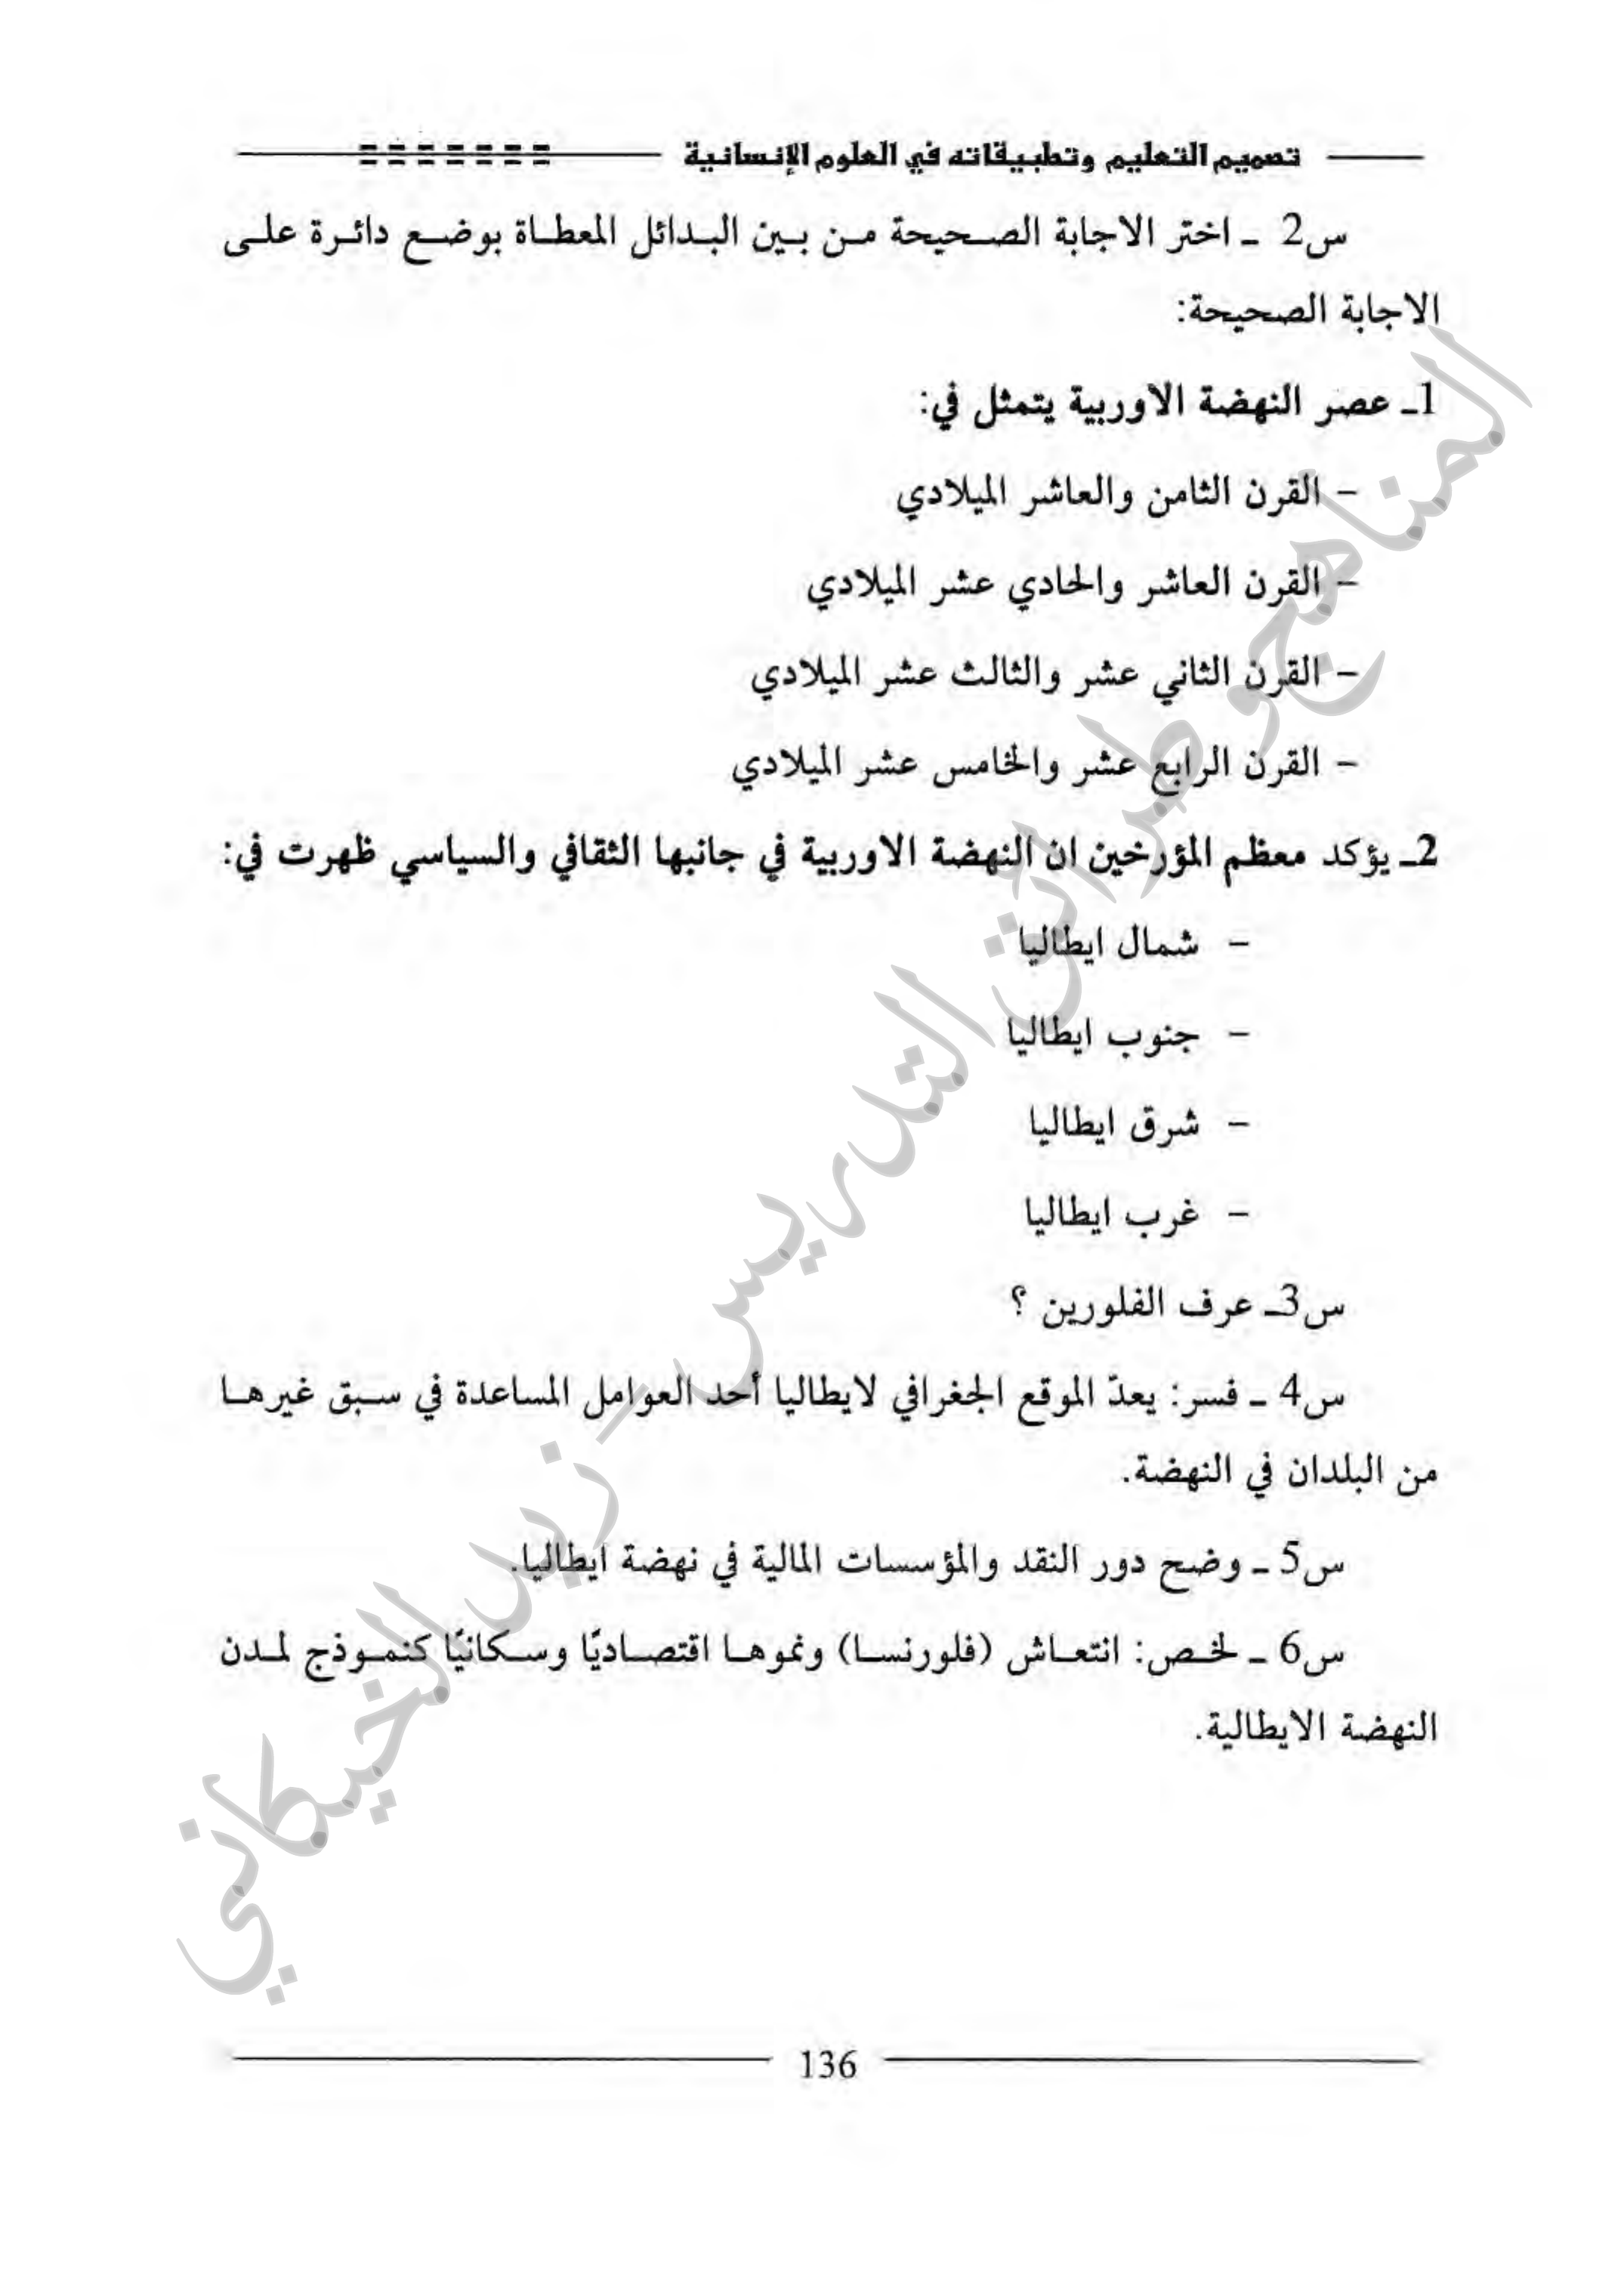 تصميم التعليم وتطبيقاته في العلوم الإنسانية
س2 ـ اختر الاجابة الصحيحة من بين البدائل المعطاة بوضع دائرة على
الاجابة الصحيحة:
1ـ عصر النهضة الاوربية يتمثل في:
– القرن الثامن والعاشر الميلادي
– القرن العاشر والحادي عشر الميلادي
– القرن الثاني عشر والثالث عشر الميلادي
– القرن الرابع عشر والخامس عشر الميلادي
2ـ يؤكد معظم المؤرخين ان النهضة الاوربية في جانبها الثقافي والسياسي ظهرت في:
– شمال ايطاليا
– جنوب ايطاليا
– شرق ايطاليا
– غرب ايطاليا
س3ـ عرف الفلورين ؟
س4 ـ فسر: يعدّ الموقع الجغرافي لايطاليا أحد العوامل المساعدة في سبق غيرها
من البلدان في النهضة.
س5 ـ وضح دور النقد والمؤسسات المالية في نهضة ايطاليا.
س6 ـ لخص: انتعاش (فلورنسا) ونموها اقتصاديًا وسكانيًا كنموذج لمدن
النهضة الايطالية.
136
المناهج وطرائق التدريس - زيد الخيكاني